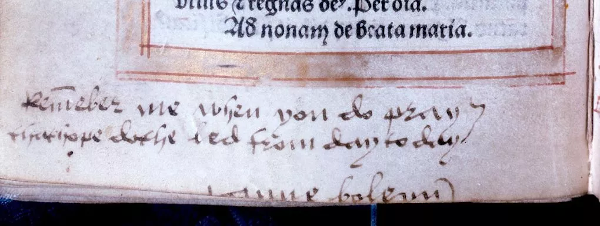 viuis ⁊ regnas de⁹. Per oīa.
Ad nonam de beata maria.
Remēber me when you do pray
that hope dothe led from day to day
anne boleyn